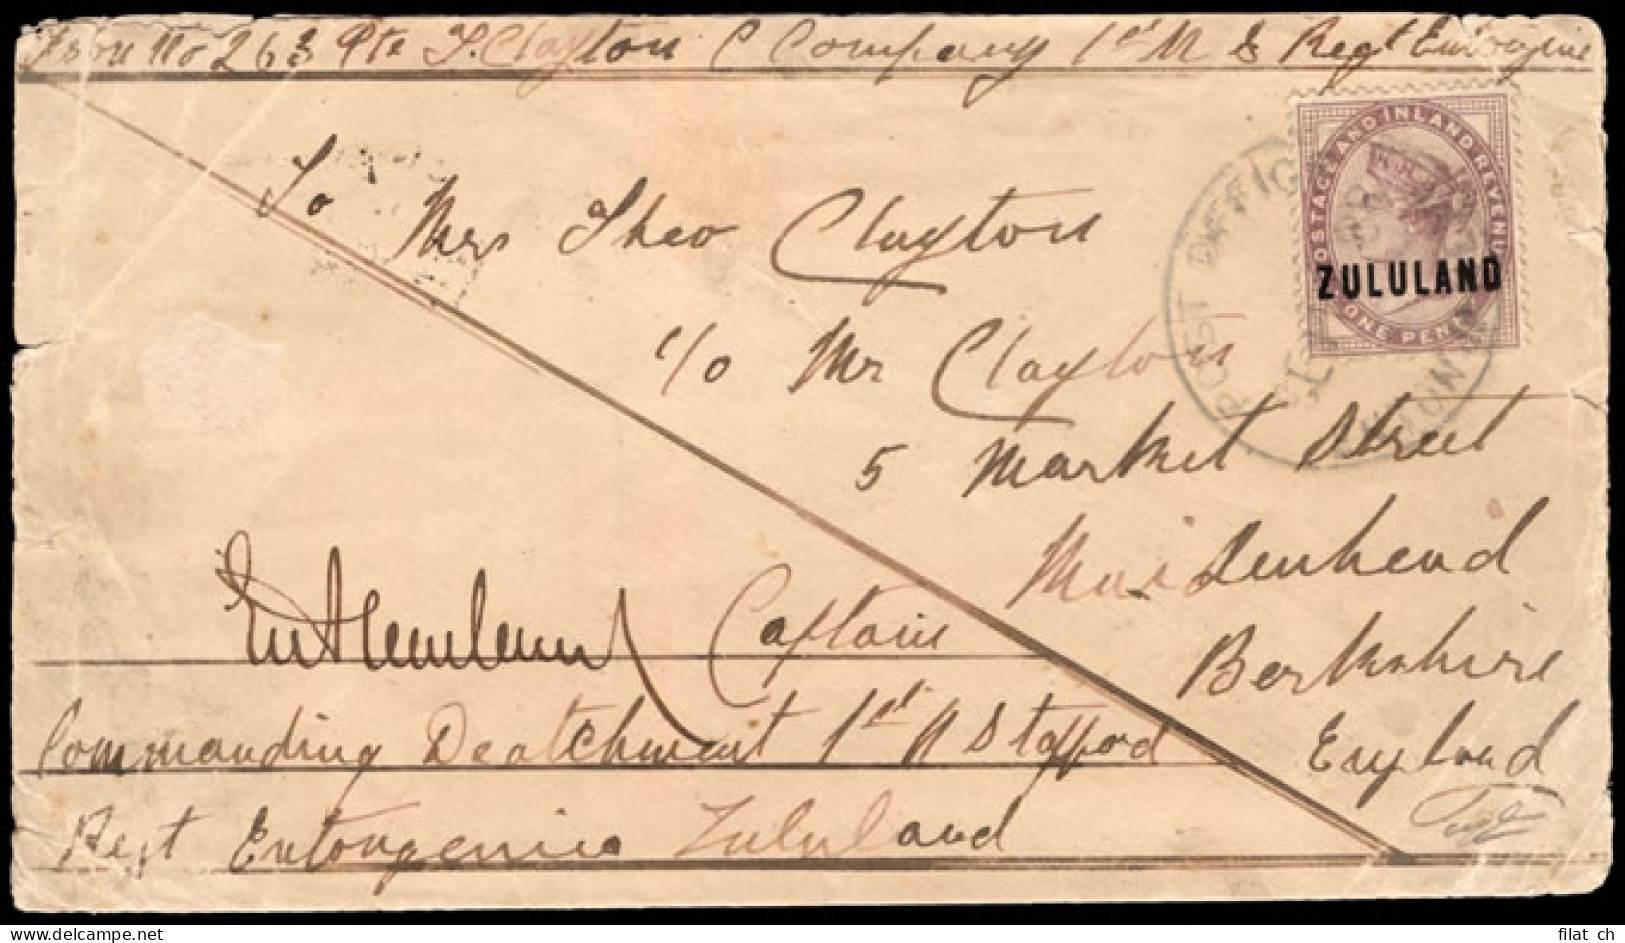 From No 263 Pte T. Clayton C Company 1st N S Regt
To
Mrs Theo Clayton
c/o Mr Clayton
5 Market Street
Maidenhead
Berkshire
England
Captain
Commanding Deatchment 1st N Stafford
Regt Entongenia Zululand
POSTAGE AND INLAND REVENUE
ZULULAND
ONE PENNY
POST OFFICE
filat ch